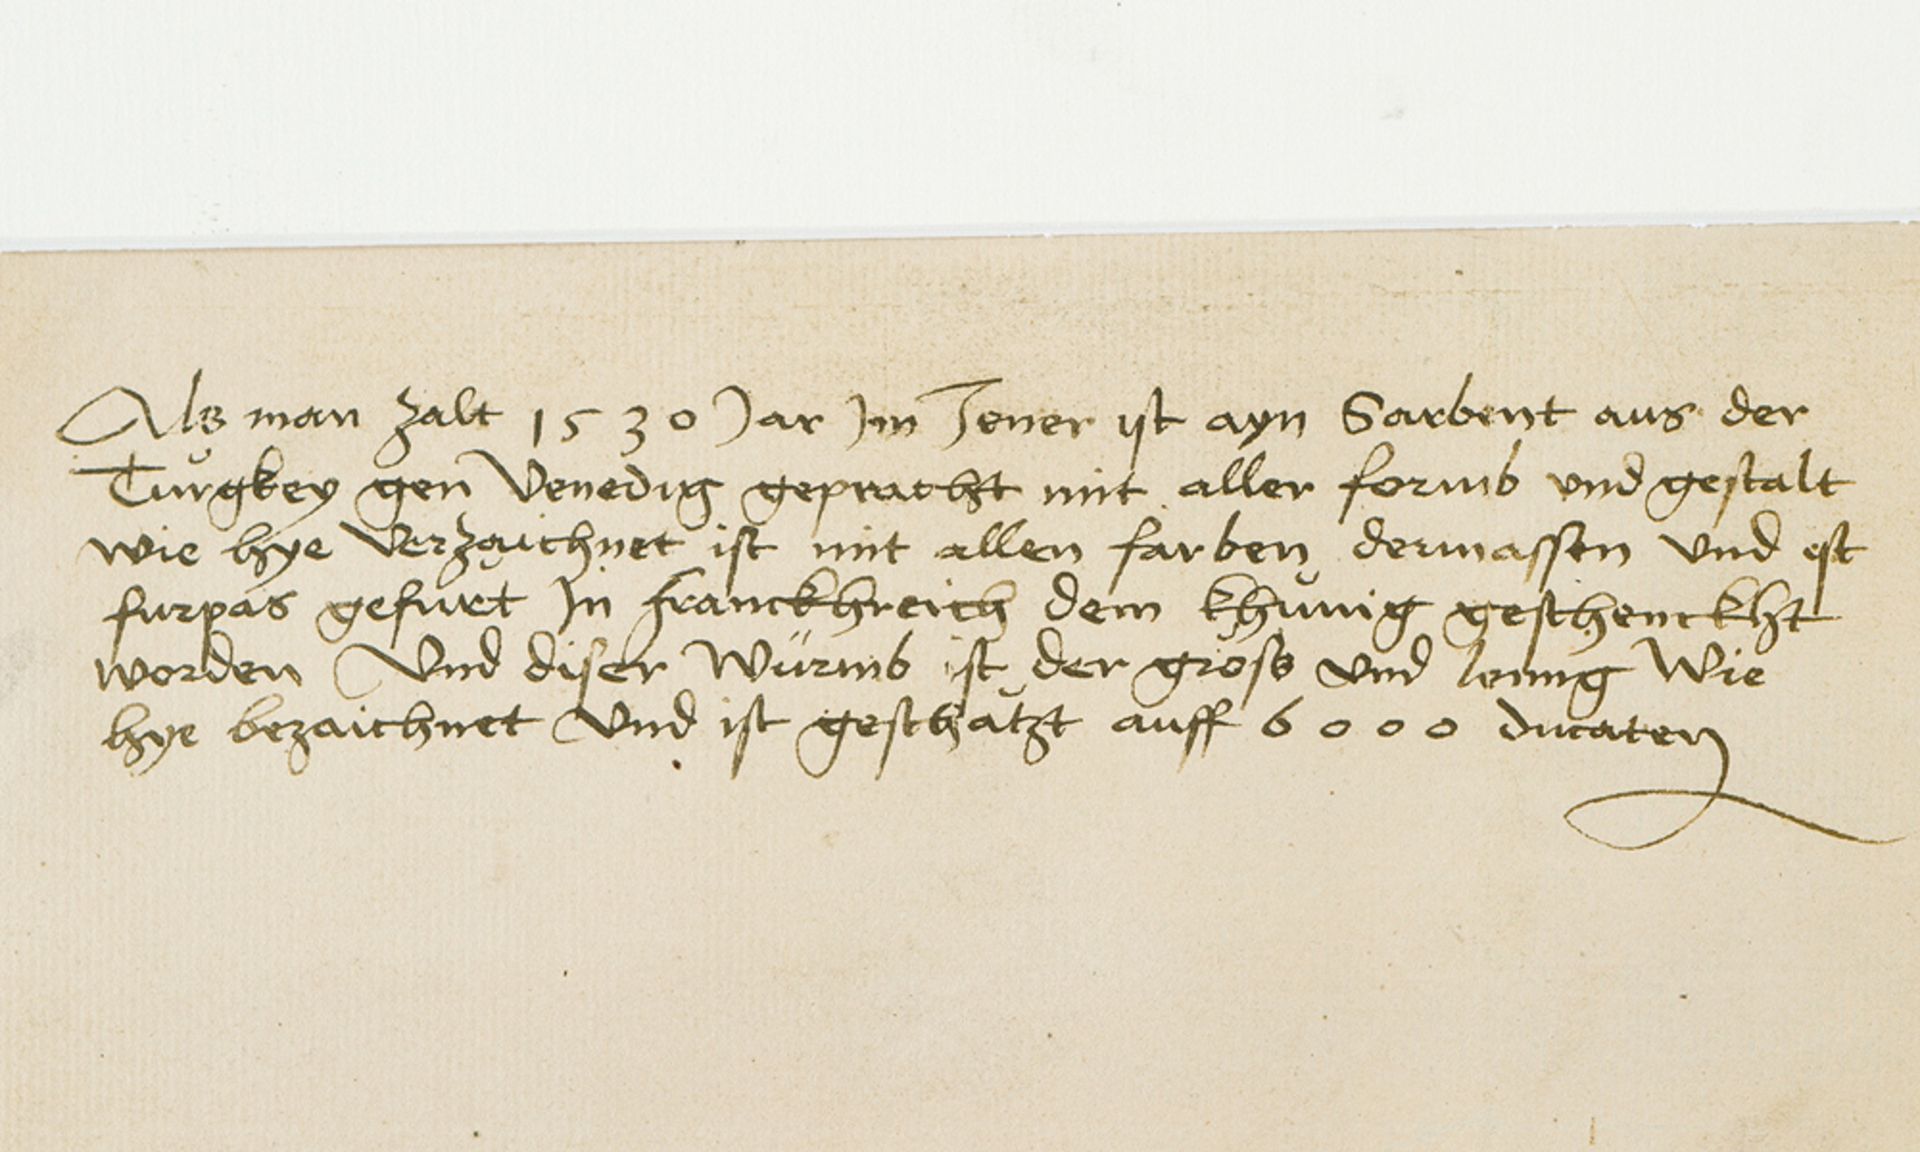 Als man zalt 1530 Jar Im Jener ist ayn Sarbent aus der
Türgkey gen Venedig gepracht mit aller formb und gestalt
wie hye Verzaichnet ist mit allen farben dermassen Und ist
furpas gefurt In Franckhreich dem khünig geschenckht
worden Und diser Würmb ist der gröss und leung Wie
hye bezaichnet Und ist geschätzt auff 6000 ducaten